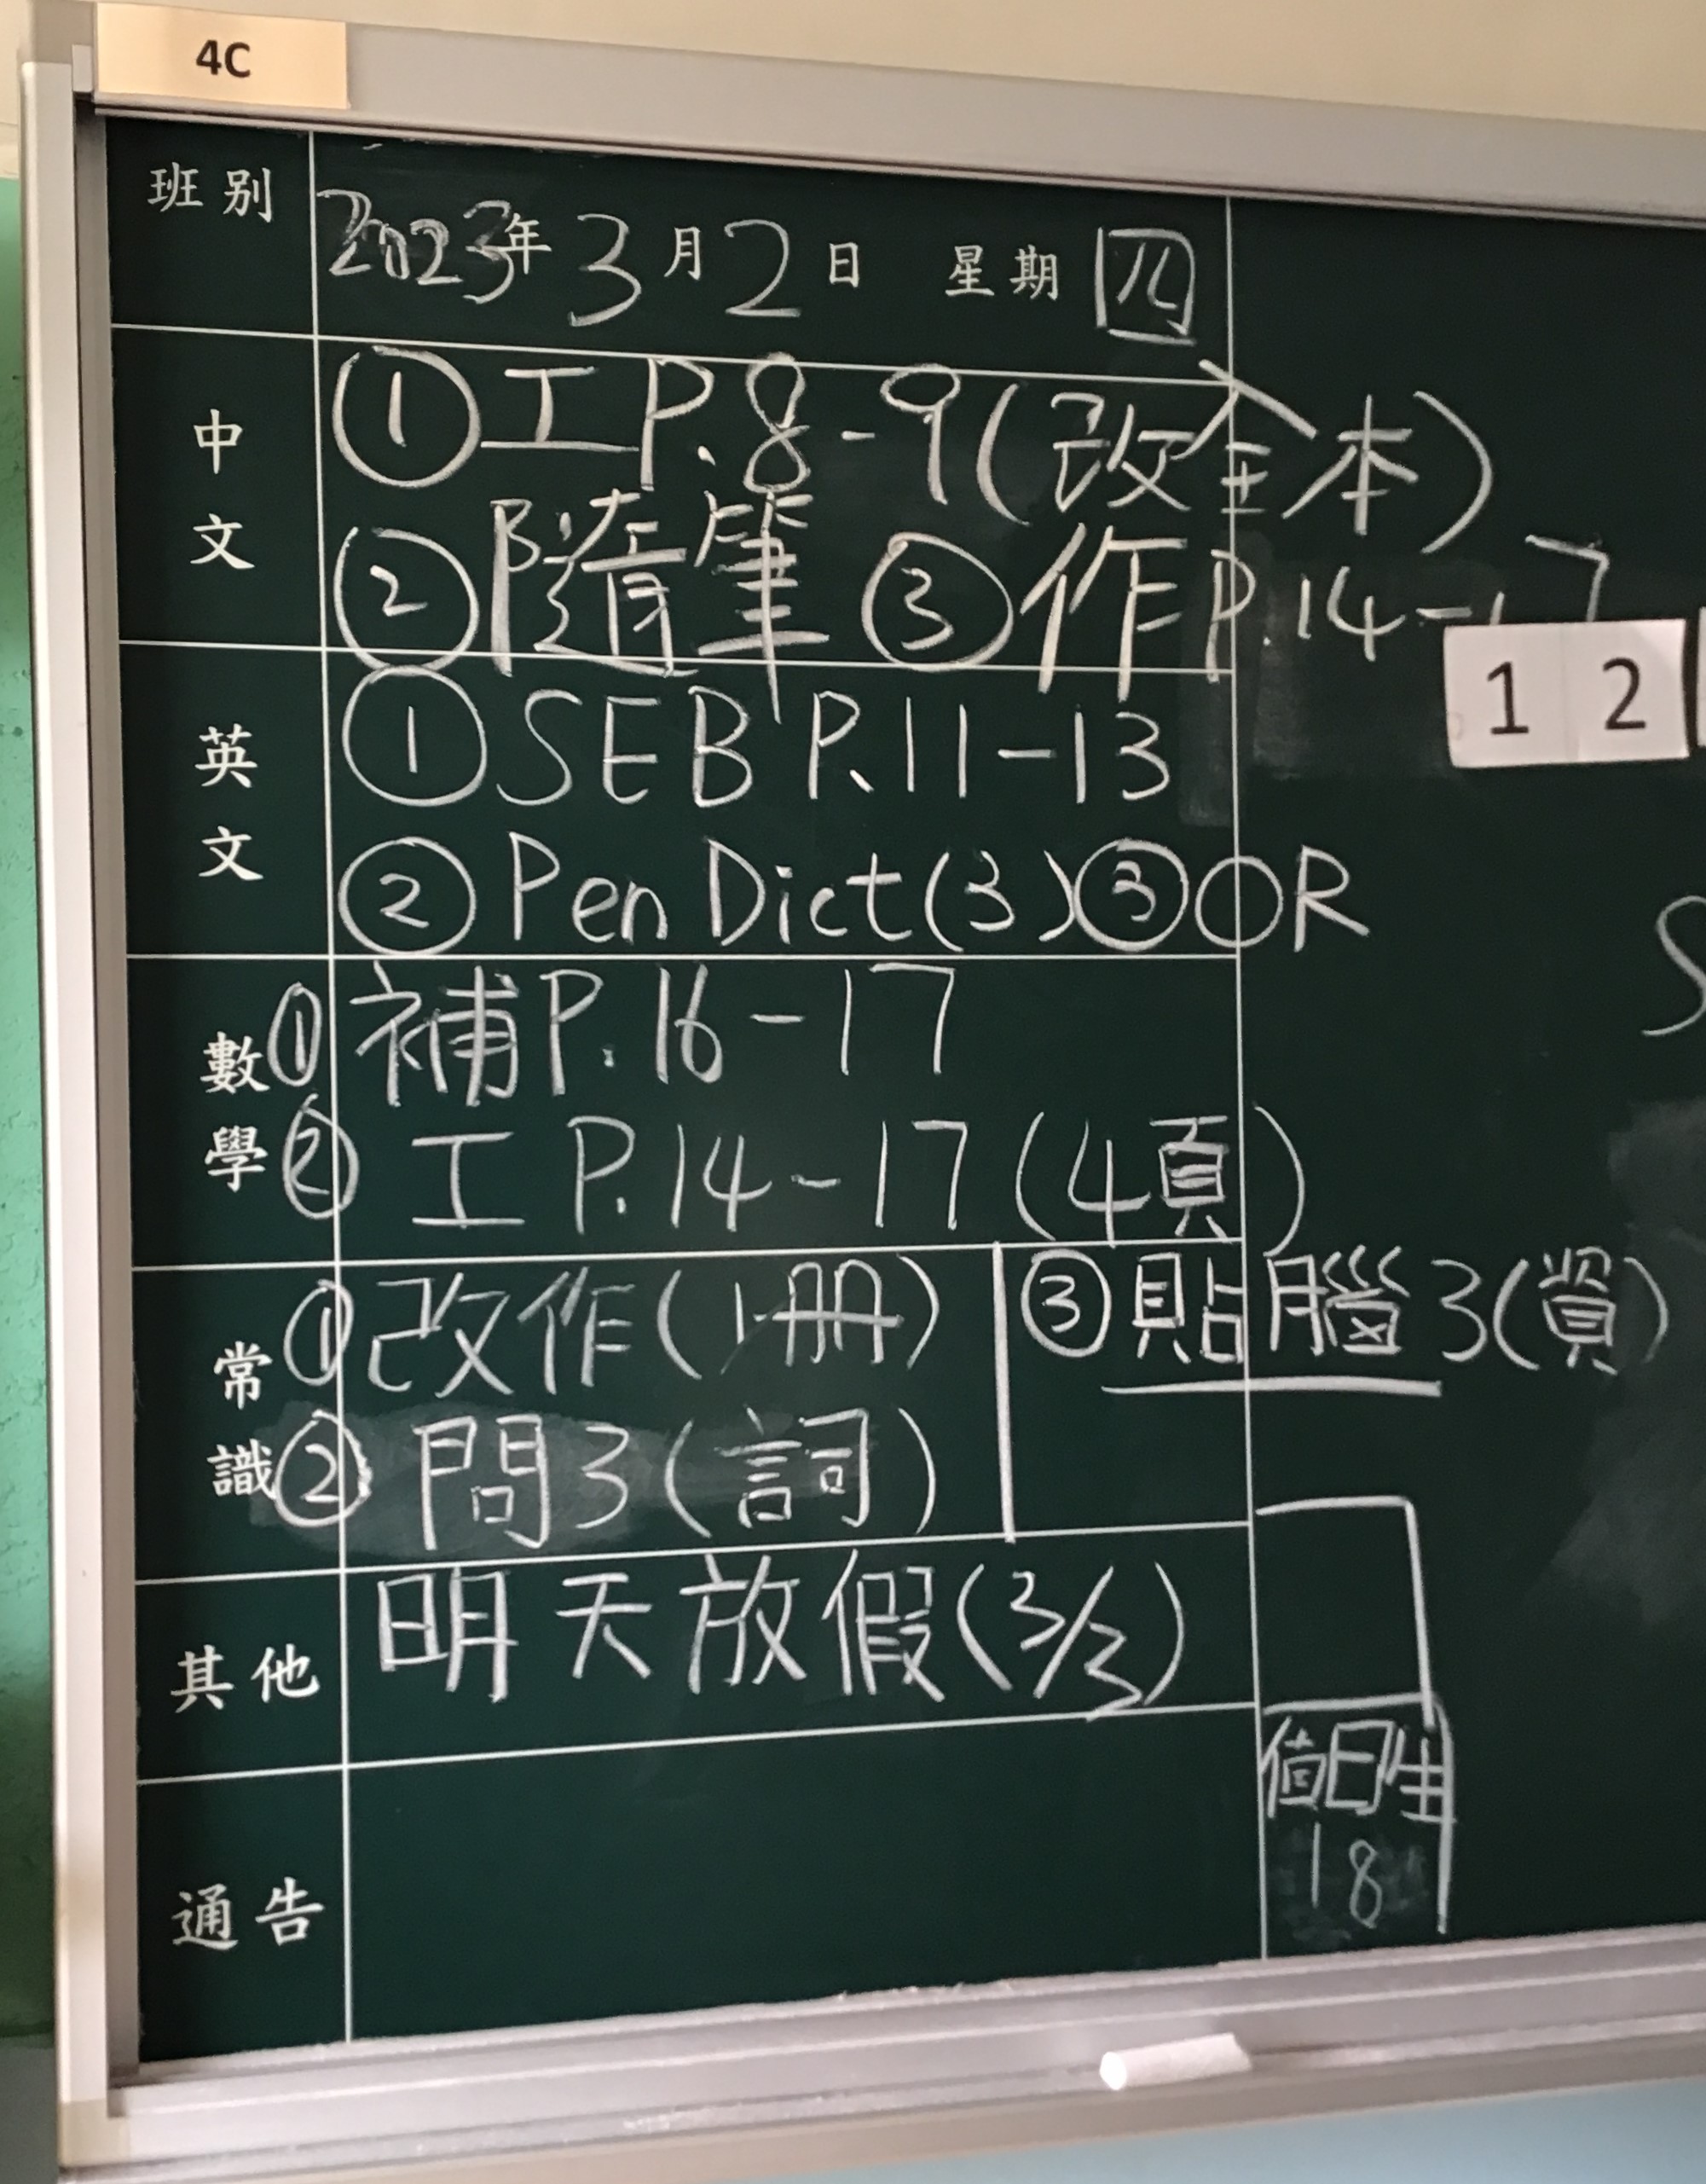 4C
班別
2023年 3月2日 星期四
中文
①工P.8-9(改全本)
②隨筆 ③作P.14-17
1 2
英文
①SEB P.11-13
②Pen Dict(3)③OR
S
數學
①補P.16-17
②工P.14-17(4頁)
常識
①改作(1冊) ③貼腦3(資)
②問3(詞)
其他
明天放假(3/3)
值日生
18
通告